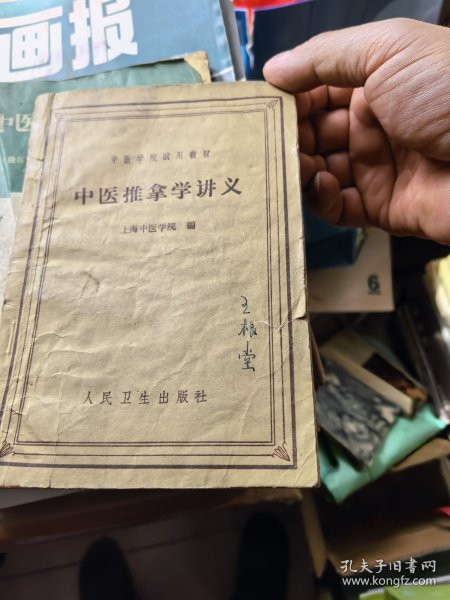 画报
中医
中医学院试用教材
中医推拿学讲义
上海中医学院 編
王根堂
人民卫生出版社
6
孔夫子旧书网
www.kongfz.com